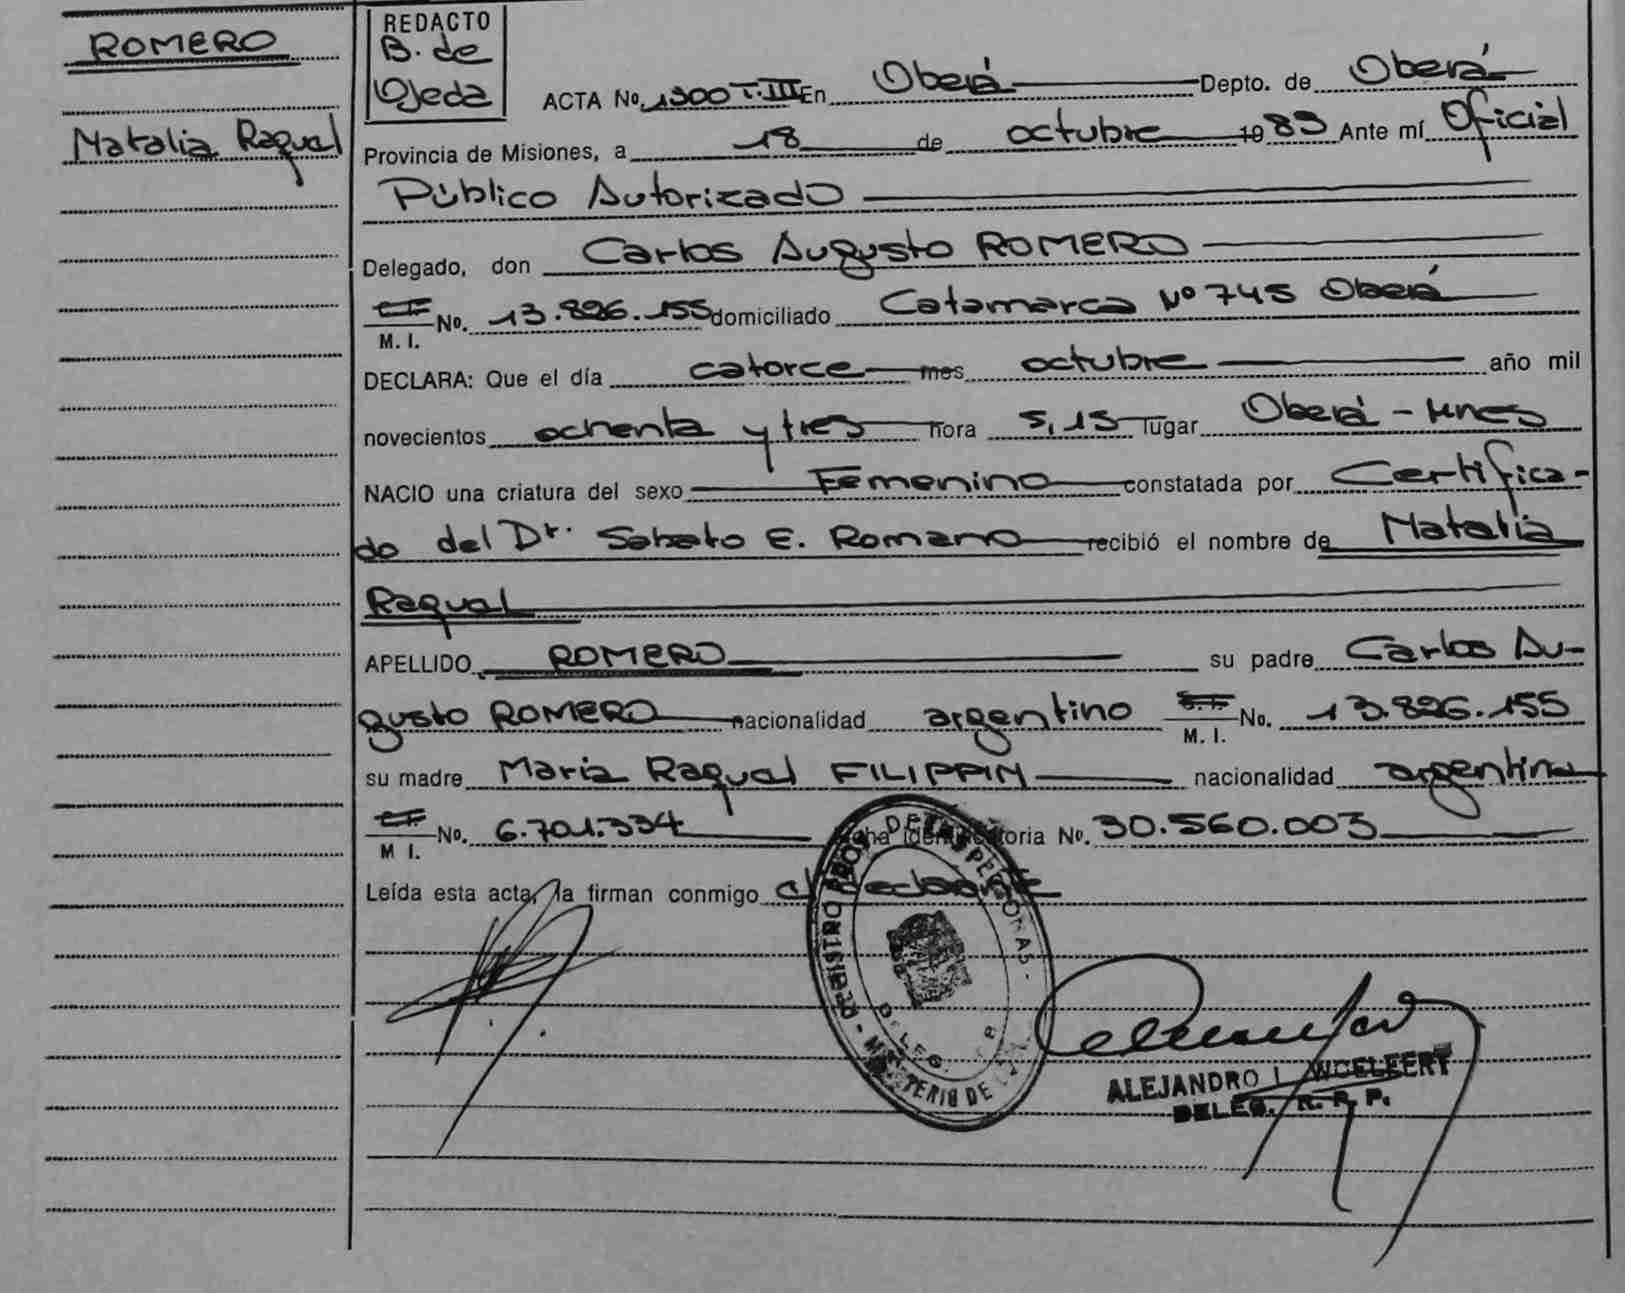 ROMERO
Natalia Raquel
REDACTO
B. de
Ojeda
ACTA No. 1300 T. III En Oberá Depto. de Oberá
Provincia de Misiones, a 18 de octubre 1983 Ante mí Oficial
Público Autorizado
Delegado, don Carlos Augusto ROMERO
C.I. No. 13.826.155 domiciliado Catamarca Nº 745 Oberá
M. I.
DECLARA: Que el día catorce mes octubre año mil
novecientos ochenta y tres hora 5,15 lugar Oberá - Mnes
NACIO una criatura del sexo Femenino constatada por Certifica-
do del Dr. Sabato E. Romano recibió el nombre de Natalia
Raquel
APELLIDO ROMERO su padre Carlos Au-
gusto ROMERO nacionalidad argentino C.I. No. 13.826.155
M. I.
su madre Maria Raquel FILIPPIN nacionalidad argentina
C.I. No. 6.701.334 Ficha identificatoria No. 30.560.003
M I.
Leída esta acta, la firman conmigo el declarante
REGISTRO PROV. DE LAS PERSONAS - MINISTERIO DE
DELEG.
ALEJANDRO L. WOELFERT
DELEG. R. R. P.